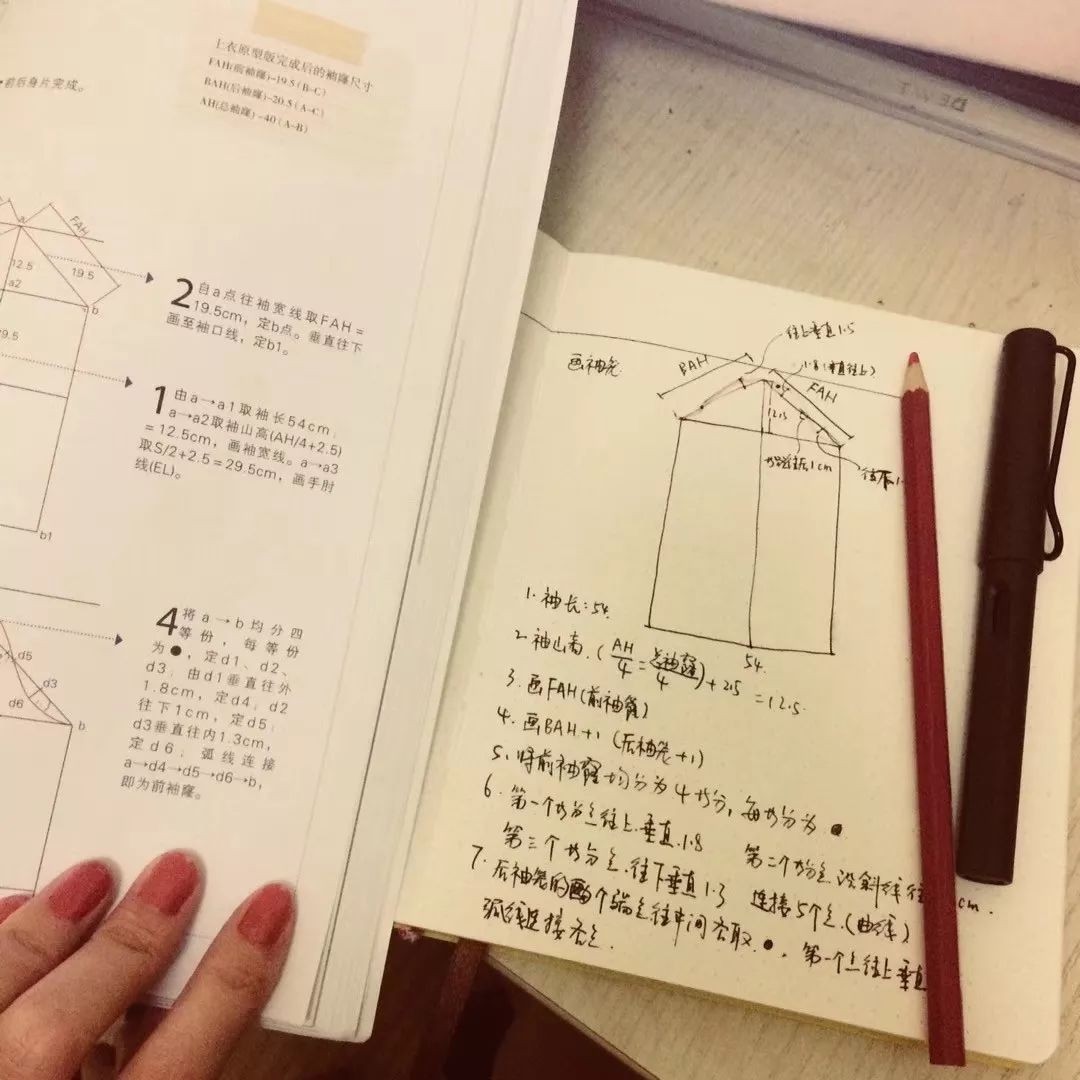 上衣原型版完成后的袖窿尺寸
FAH(前袖窿)-19.5(B-C)
BAH(后袖窿)-20.5(A-C)
AH(总袖窿)-40(A-B)
前后身片完成。
a
FAH
12.5
19.5
a2
b
9.5
b1
2 自a点往袖宽线取FAH=
19.5cm,定b点。垂直往下
画至袖口线,定b1。
1 由a→a1取袖长54cm,
a→a2取袖山高(AH/4+2.5)
=12.5cm,画袖宽线。a→a3
取S/2+2.5=29.5cm,画手肘
线(EL)。
d5
d3
d6
b
4 将a→b均分四
等份,每等份
为●,定d1、d2、
d3;由d1垂直往外
1.8cm,定d4;d2
往下1cm,定d5;
d3垂直往内1.3cm,
定d6;弧线连接
a→d4→d5→d6→b,
即为前袖窿。
画袖笼
BAH
往上垂直1.5
1.8(垂直往上)
FAH
12.5
1cm
54
1. 袖长:54
2. 袖山高.(AH/4=总袖窿/4)+2.5=12.5
3. 画FAH(前袖窿)
4. 画BAH+1(后袖笼+1)
5. 将前袖窿均分为4均分,每均分为●
6. 第一个均分点往上垂直1.8 第二个均分点沿斜线往 cm.
第三个均分点往下垂直1.3 连接5个点.(曲线)
7. 后袖笼的两个端点往中间各取●,第一个点往上垂直
弧线连接各点.